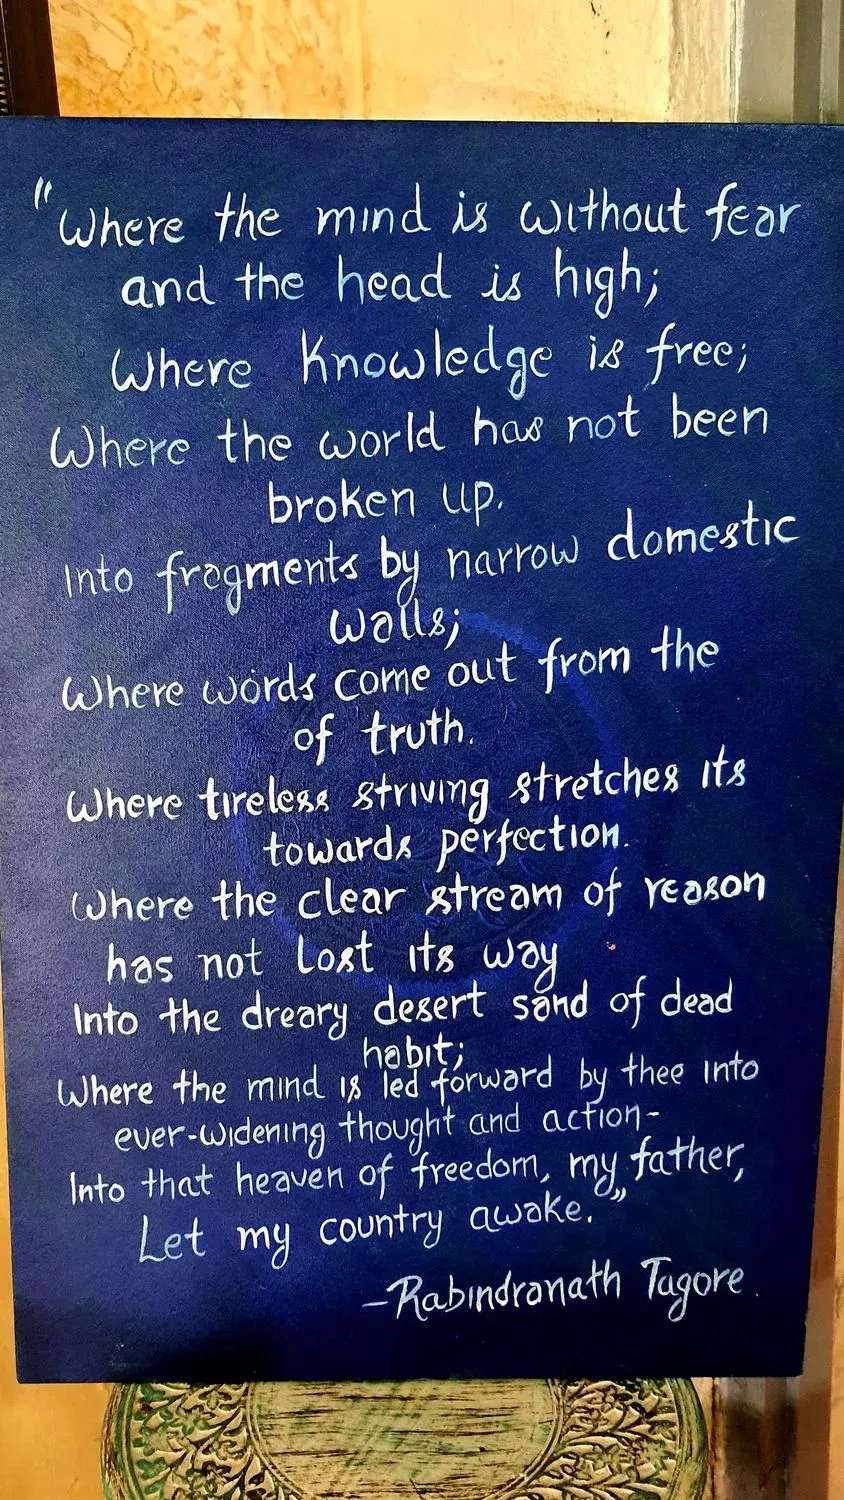 "Where the mind is without fear
and the head is high;
Where Knowledge is free;
Where the world has not been
broken up.
Into fragments by narrow domestic
walls;
Where words come out from the
of truth.
Where tireless striving stretches its
towards perfection.
Where the clear stream of reason
has not Lost its way
Into the dreary desert sand of dead
habit;
Where the mind is led forward by thee into
ever-widening thought and action-
Into that heaven of freedom, my father,
Let my country awake."
-Rabindranath Tagore.